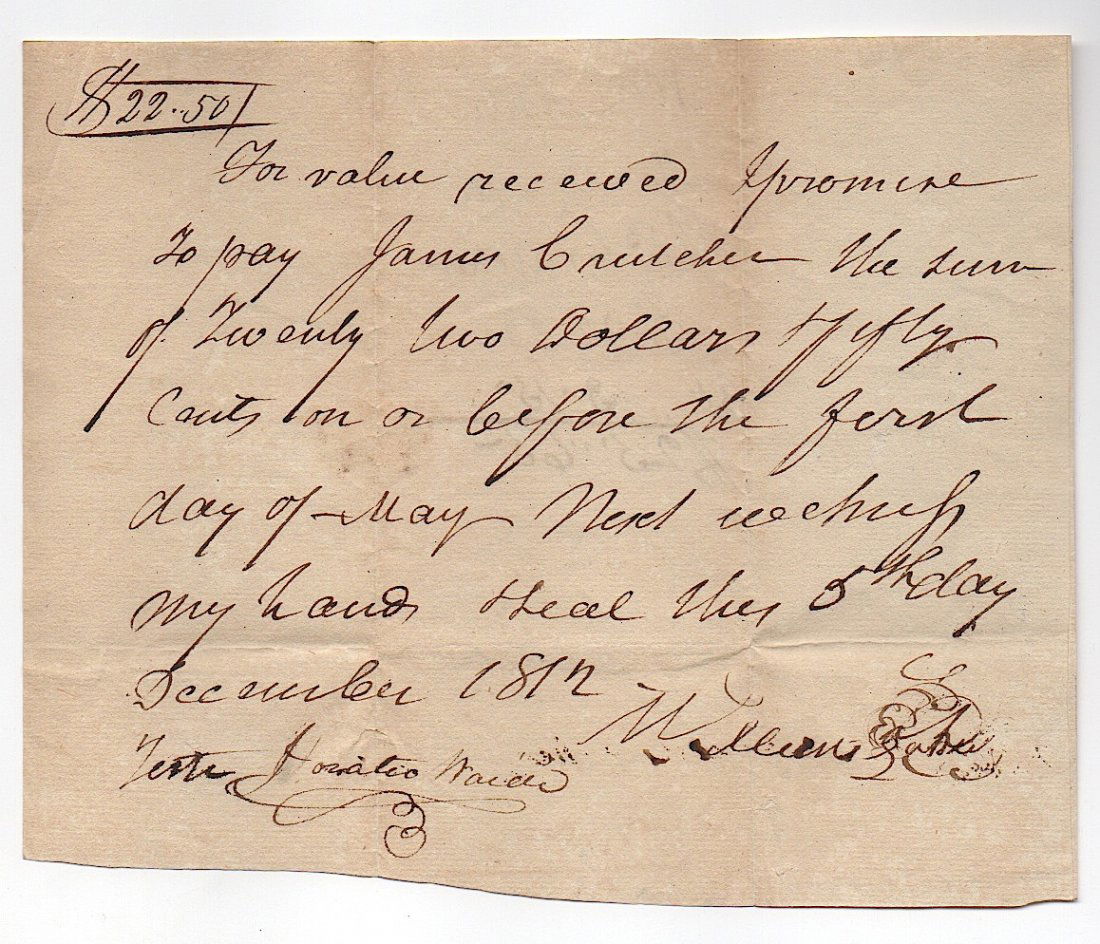 $22..50
For value received I promise
To pay James Crutcher the sum
of Twenty two Dollars & fifty
Cents on or before the first
day of May Next witness
my hand & seal this 5th day
December 1812
William
Teste Horatio